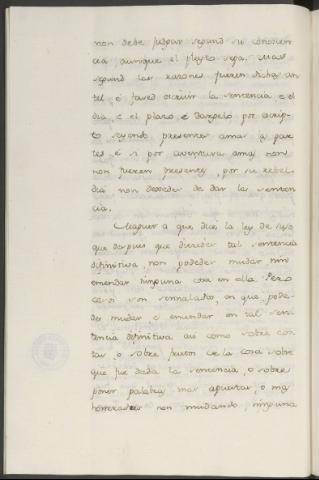 non debe judgar segund su concien
cia aunque el pleyto sepa. Mas
segund las razones fueren dichas an
tel é fared escrivir la sentencia, é el
dia, é el plazo é dargelo por escrip
to seyendo presentes amas a par
tes é si por aventura amas non
non fueren presentes, por su rebel
dia non dexedes de dar la senten
cia.
Maguer a que dice la ley de suso
que despues que dieredes tal sentencia
difinitiva, non podedes mudar nin
emendar ninguna cosa en ella. Pero
casos son sennalados, en que pode
des mudar é emendar en tal sen
tencia difinitiva asi como sobre cos
tas, o sobre frutos de la cosa sobre
que fue dada la sentencia, o sobre
poner palabras mas apuestas, o mas
honradas non mudando ninguna